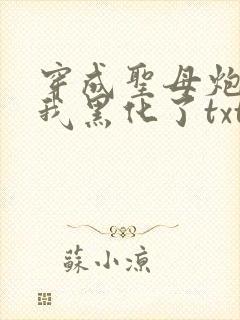 穿成聖母炮
我黑化了txt
蘇小涼